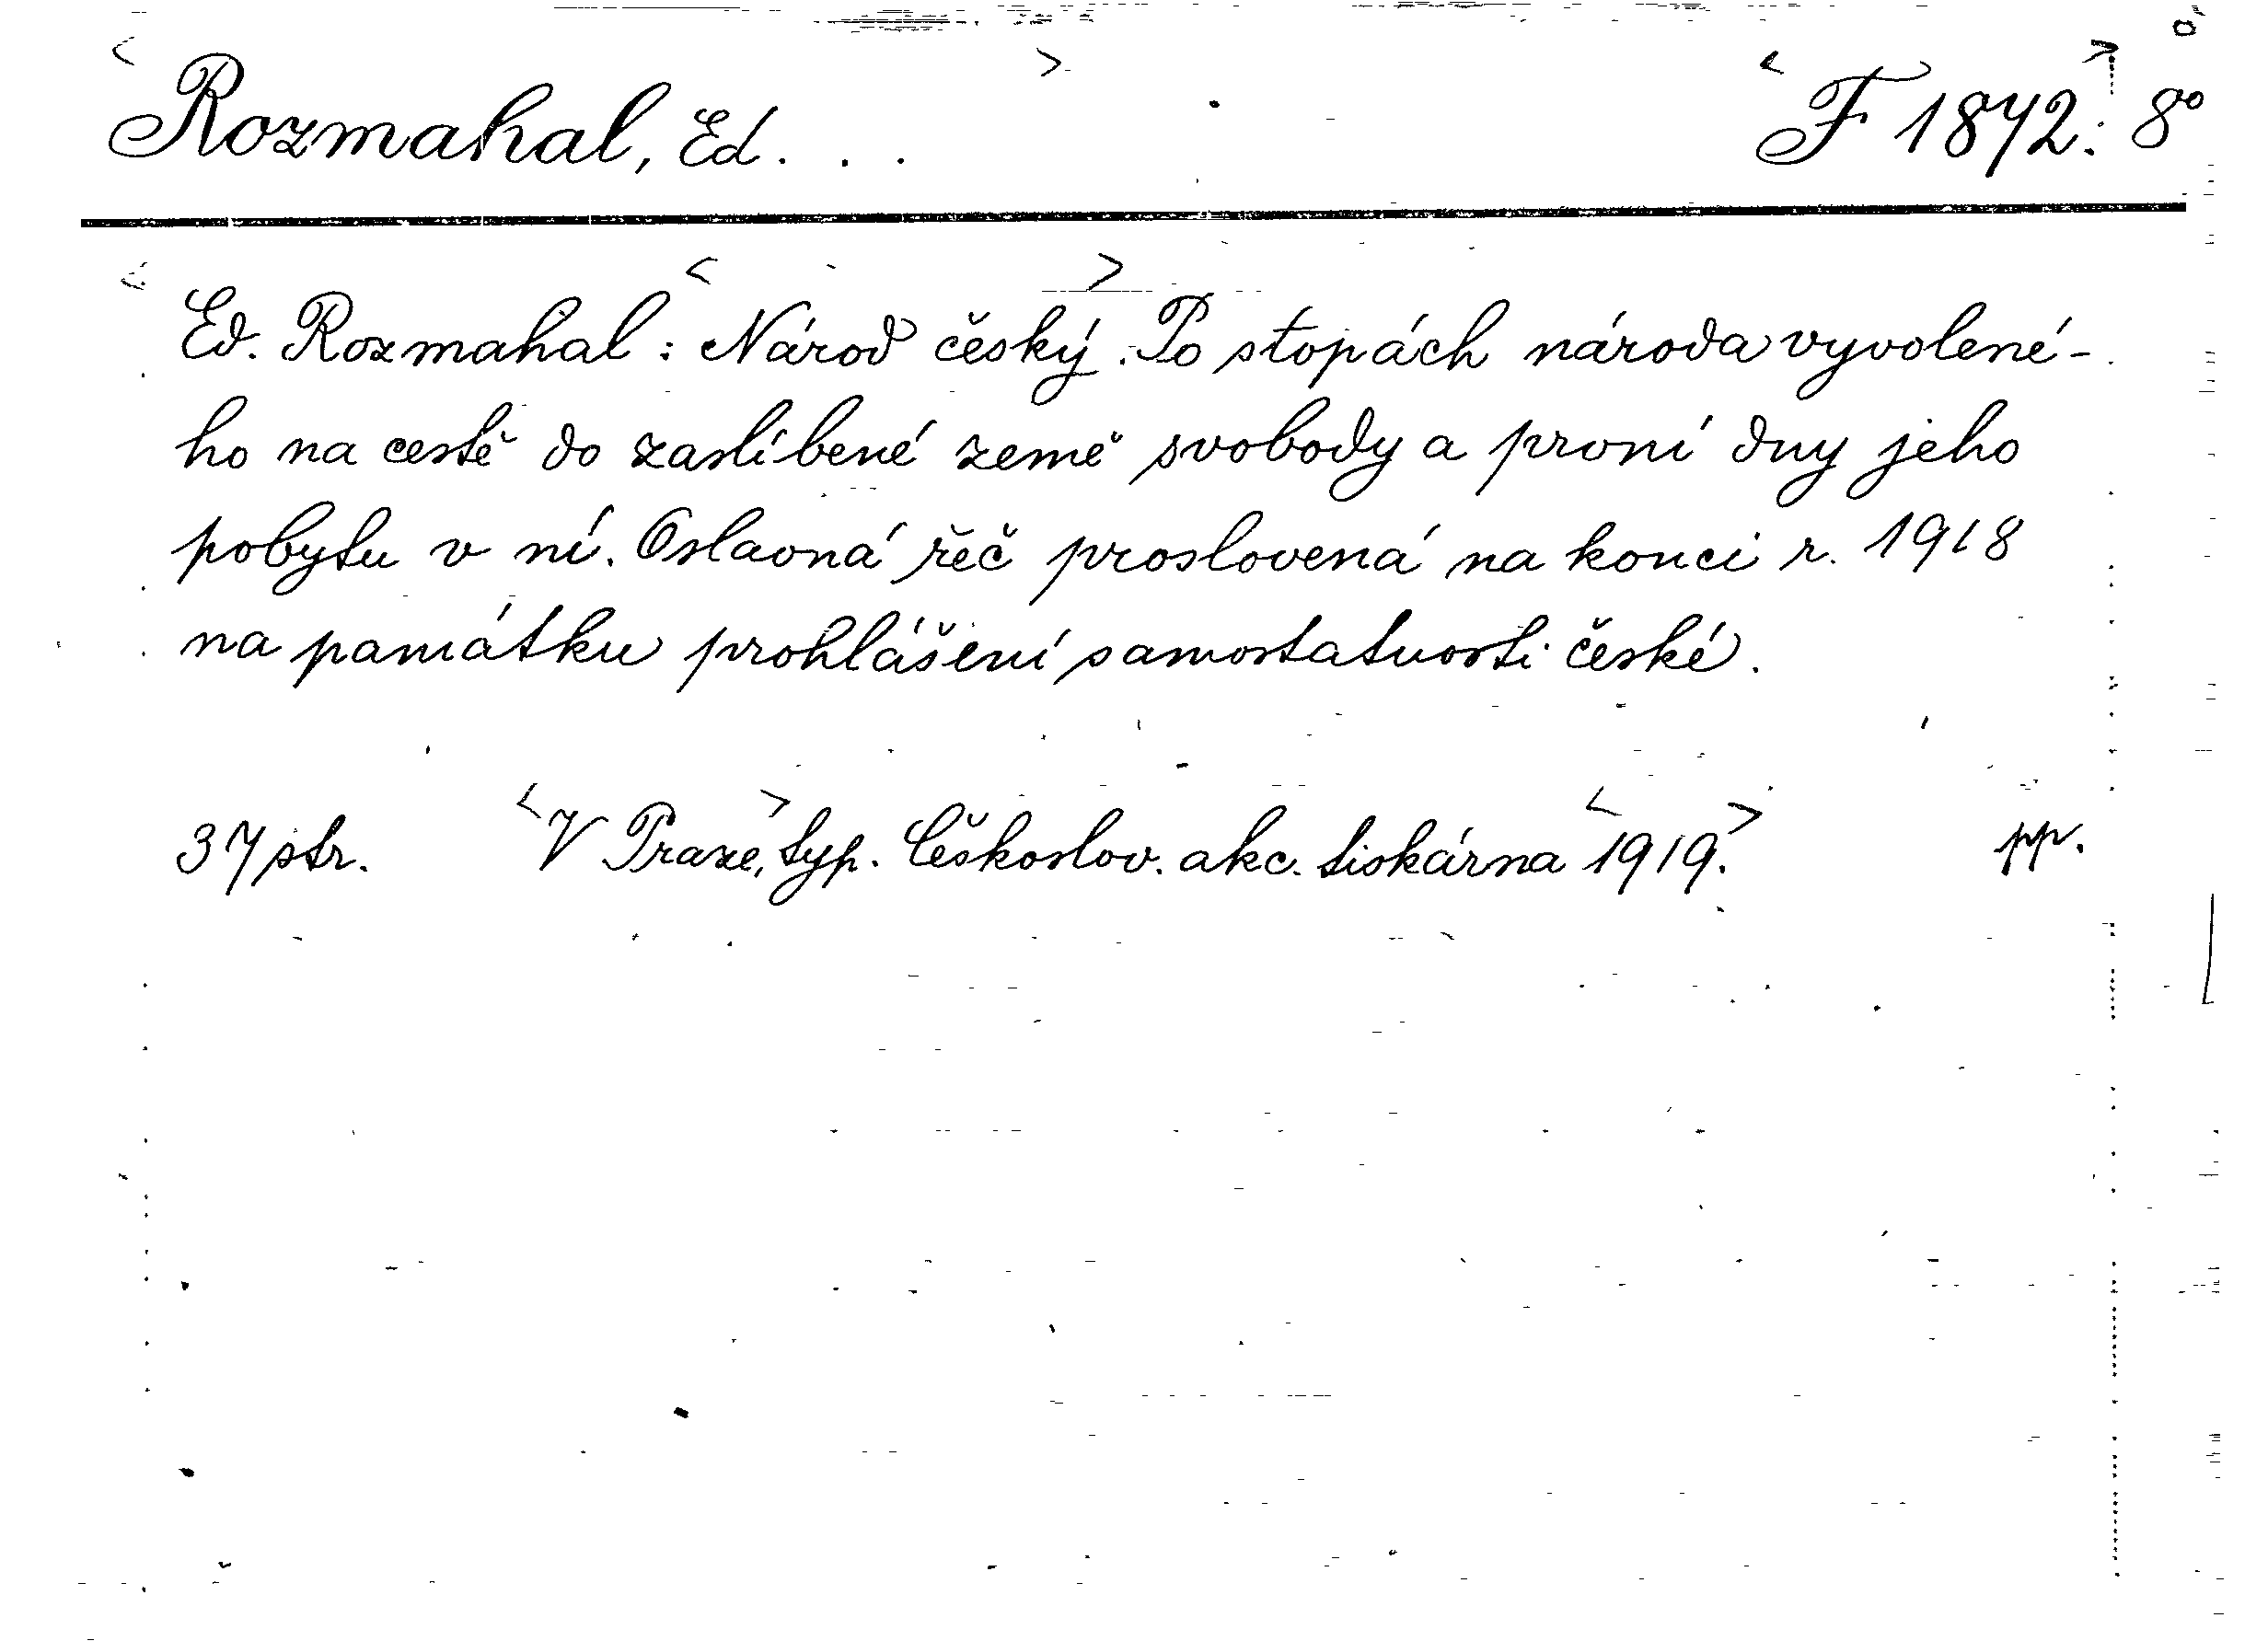 Rozmahal, Ed. . . F 1872. 8°
Ed. Rozmahal: Národ český. Po stopách národa vyvolené-
ho na cestě do zaslíbené země svobody a první dny jeho
pobytu v ní. Oslavná řeč proslovená na konci r. 1918
na památku prohlášení samostatnosti české.
37 str. V Praze, typ. Českoslov. akc. tiskárna 1919. pp.